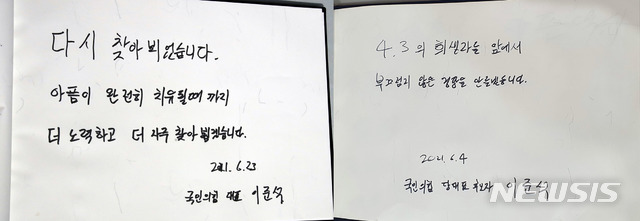 다시 찾아 뵈었습니다.
아픔이 완전히 치유될때 까지
더 노력하고 더 자주 찾아 뵙겠습니다.
2021. 6. 23
국민의힘 대표 이준석
4.3의 희생자들 앞에서
부끄럽지 않은 경쟁을 만들겠습니다.
2021. 6. 4
국민의힘 당대표 후보자 이준석
NEWSIS